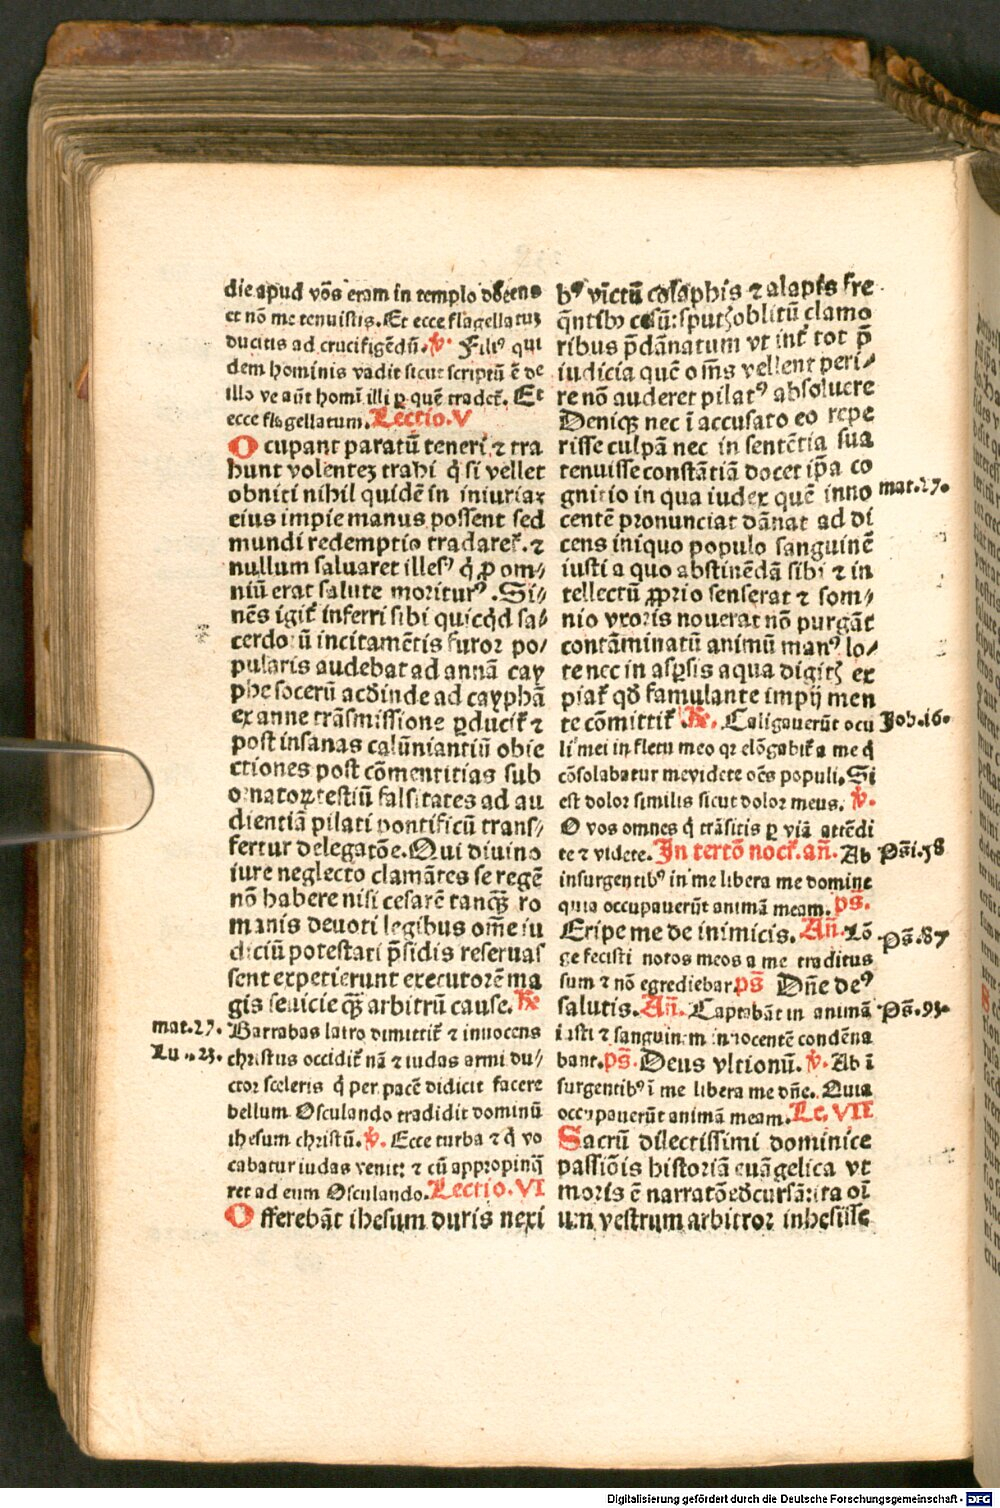 die apud vōs eram in templo docens
et nō me tenuistis. Et ecce flagellatuꝫ
ducitis ad crucifigēdū. ℣. Filiꝰ qui
dem hominis vadit sicut scriptū ē de
illo ve aūt homī illi ꝑ quē tradet᷑. Et
ecce flagellatum. Lectio. V
Ocupant paratū teneri. ⁊ tra
hunt volenteꝫ trahi q̇ si vellet
obniti nihil quidē in iniuriaꝫ
eius impie manus possent sed
mundi redemptio tradaret᷑. ⁊
nullum saluaret illesꝰ q̇ ꝓ om⸗
niū erat salute moriturꝰ. Si⸗
nēs igit᷑ inferri sibi quicq̇d sa⸗
cerdo ū incitamētis furor po⸗
pularis audebat ad annā cay
phe socerū acdinde ad cayphā
ex anne trāsmissione ꝑducit᷑ ⁊
post insanas calūniantiū obie
ctiones post cōmentitias sub
ornatoꝝ testiū falsitates ad au
dientiā pilati pontificū trans⸗
fertur delegatōe. Qui diuino
iure neglecto clamātes se regē
nō habere nisi cesarē tanq̄ꝫ ro
manis deuoti legibus om̄e iu
diciū potestati p̄sidis reseruas
sent expetierunt executorē ma
gis seuicie q̄ꝫ arbitrū cause. ℟
mat. 27. Barrabas latro dimittit᷑ ⁊ innocens
Lu. 23. christus occidit᷑ nā ⁊ iudas armi du⸗
ctor sceleris q̇ per pacē didicit facere
bellum Osculando tradidit dominū
ihesum christū. ℣. Ecce turba ⁊ q̇ vo
cabatur iudas venit: ⁊ cū appropinq̄
ret ad eum Osculando. Lectio. VI
Offerebāt ihesum duris nexi
bꝰ vīctū colaphis ⁊ alapis fre
q̄ntibꝫ cesū: sputꝭ oblitū clamo
ribus p̄dānatum vt int᷑ tot p̄
iudicia quē om̄s vellent peri⸗
re nō auderet pilatꝰ absoluere
Deniqꝫ nec ī accusato eo repe
risse culpā nec in sentētia sua
tenuisse constātiā docet ip̄a co
gnitio in qua iudex quē inno mat. 27.
centē pronunciat dānat ad di
cens iniquo populo sanguinē
iusti a quo abstinēdā sibi ⁊ in
tellectū ꝓprio senserat ⁊ som⸗
nio vxoris nouerat nō purgāt
contāminatū animū manꝰ lo⸗
te nec in asꝑsis aqua digitꝭ ex
piat᷑ qd̄ famulante impij men
te cōmittit᷑. ℟. Caligauerūt ocu Job. 16.
li mei in fletu meo qꝛ elōgabit᷑ a me q̇
cōsolabatur me videte oēs populi. Si
est dolor similis sicut dolor meus. ℣.
O vos omnes q̇ trāsitis ꝑ viā attēdi
te ⁊ videte. In tertō noct᷑. an̄. Ab Ps̄i. 58
insurgentibꝰ in me libera me domine
quia occupauerūt animā meam. ps̄.
Eripe me de inimicis. An̄. Lō Ps̄. 87
ge fecisti notos meos a me traditus
sum ⁊ nō egrediebar. ps̄ Dn̄e deꝰ
salutis. An̄. Captabāt in animā Ps̄. 93.
iusti ⁊ sanguinem innocentē condēna
bant. ps̄. Deus vltionū. ℣. Ab ī
surgentibꝰ ī me libera me dn̄e. Quia
occupauerūt animā meam. Le. VII
Sacrū dilectissimi dominice
passiōis historiā euāgelica vt
moris ē narratōe decursā: ita oī
um vestrum arbitror inhesisse
Digitalisierung gefördert durch die Deutsche Forschungsgemeinschaft - DFG